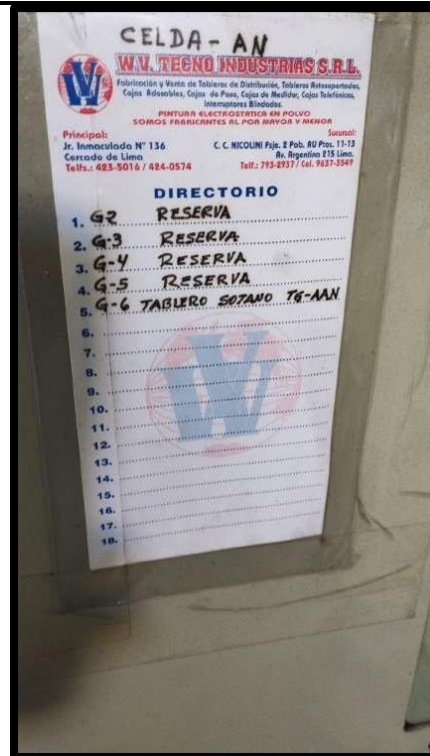 CELDA-AN
W.V. TECNO INDUSTRIAS S.R.L.
Fabricación y Venta de Tableros de Distribución, Tableros Autosoportados,
Cajas Adosables, Cajas de Paso, Cajas de Medidor, Cajas Telefónicas,
Interruptores Blindados.
PINTURA ELECTROSTATICA EN POLVO
SOMOS FABRICANTES AL POR MAYOR Y MENOR
Principal:
Jr. Inmaculada N° 136
Cercado de Lima
Telfs.: 423-5016 / 424-0574
Sucursal:
C. C. NICOLINI Psje. 2 Pob. RU Ptos. 11-13
Av. Argentina 215 Lima.
Telf.: 793-2937 / Cel. 9637-3549
DIRECTORIO
1. G2 RESERVA
2. G-3 RESERVA
3. G-4 RESERVA
4. G-5 RESERVA
5. G-6 TABLERO SOTANO TG-AAN
6.
7.
8.
9.
10.
11.
12.
13.
14.
15.
16.
17.
18.